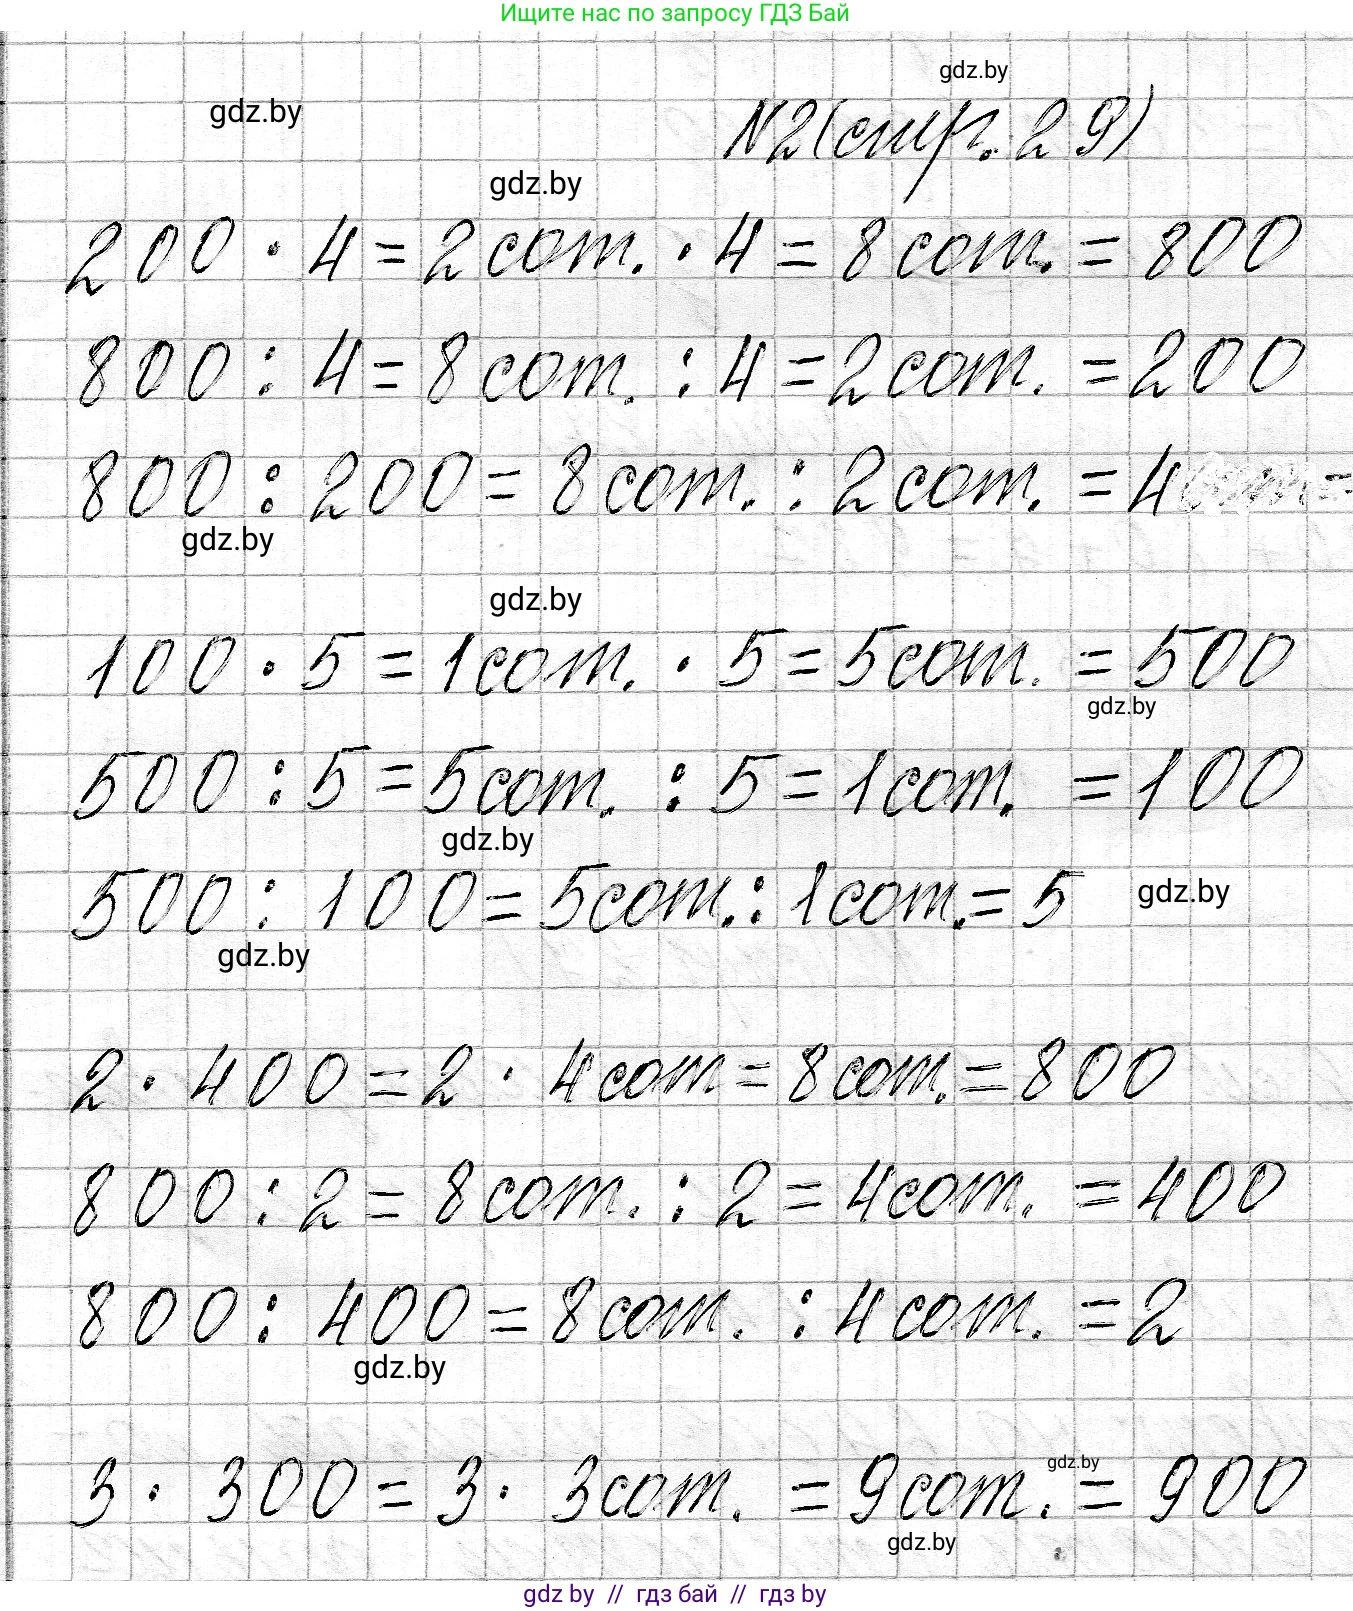 Ищите нас по запросу ГДЗ Бай
gdz.by
gdz.by
№2(стр. 29)
gdz.by
200 · 4 = 2 сот. · 4 = 8 сот. = 800
800 : 4 = 8 сот. : 4 = 2 сот. = 200
800 : 200 = 8 сот. : 2 сот. = 4
gdz.by
gdz.by
100 · 5 = 1 сот. · 5 = 5 сот. = 500
gdz.by
500 : 5 = 5 сот. : 5 = 1 сот. = 100
gdz.by
500 : 100 = 5 сот. : 1 сот. = 5
gdz.by
gdz.by
2 · 400 = 2 · 4 сот = 8 сот. = 800
800 : 2 = 8 сот. : 2 = 4 сот. = 400
800 : 400 = 8 сот. : 4 сот. = 2
gdz.by
gdz.by
3 · 300 = 3 · 3 сот. = 9 сот. = 900
gdz.by
gdz by // гдз бай // гдз by